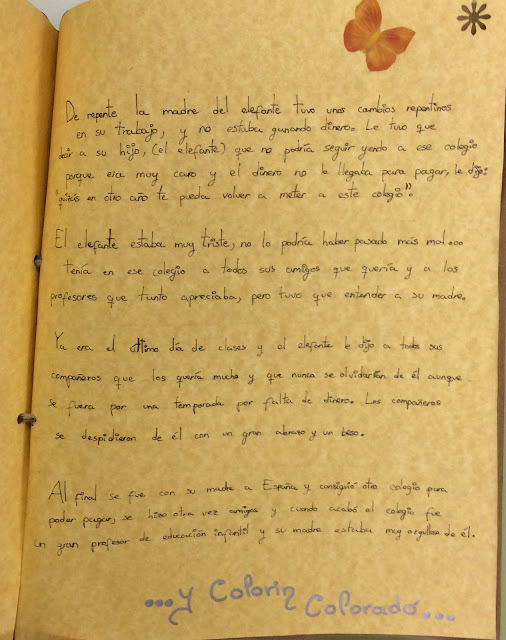 De repente la madre del elefante tuvo unos cambios repentinos
en su trabajo, y no estaba ganando dinero. Le tuvo que
decir a su hijo, (el elefante) que no podría seguir yendo a ese colegio
porque era muy caro y el dinero no le llegaba para pagar, le dijo:
"quizás en otro año te pueda volver a meter a este colegio".
El elefante estaba muy triste, no lo podría haber pasado más mal...
tenía en ese colegio a todos sus amigos que quería y a los
profesores que tanto apreciaba, pero tuvo que entender a su madre.
Ya era el último día de clases y el elefante le dijo a todos sus
compañeros que los quería mucho y que nunca se olvidarían de él aunque
se fuera por una temporada por falta de dinero. Los compañeros
se despidieron de él con un gran abraso y un beso.
Al final se fue con su madre a España y consiguió otro colegio para
poder pagar, se hiso otra vez amigos y cuando acabó el colegio fue
un gran profesor de educación infantil y su madre estaba muy orgullosa de él.
...y Colorín Colorado...